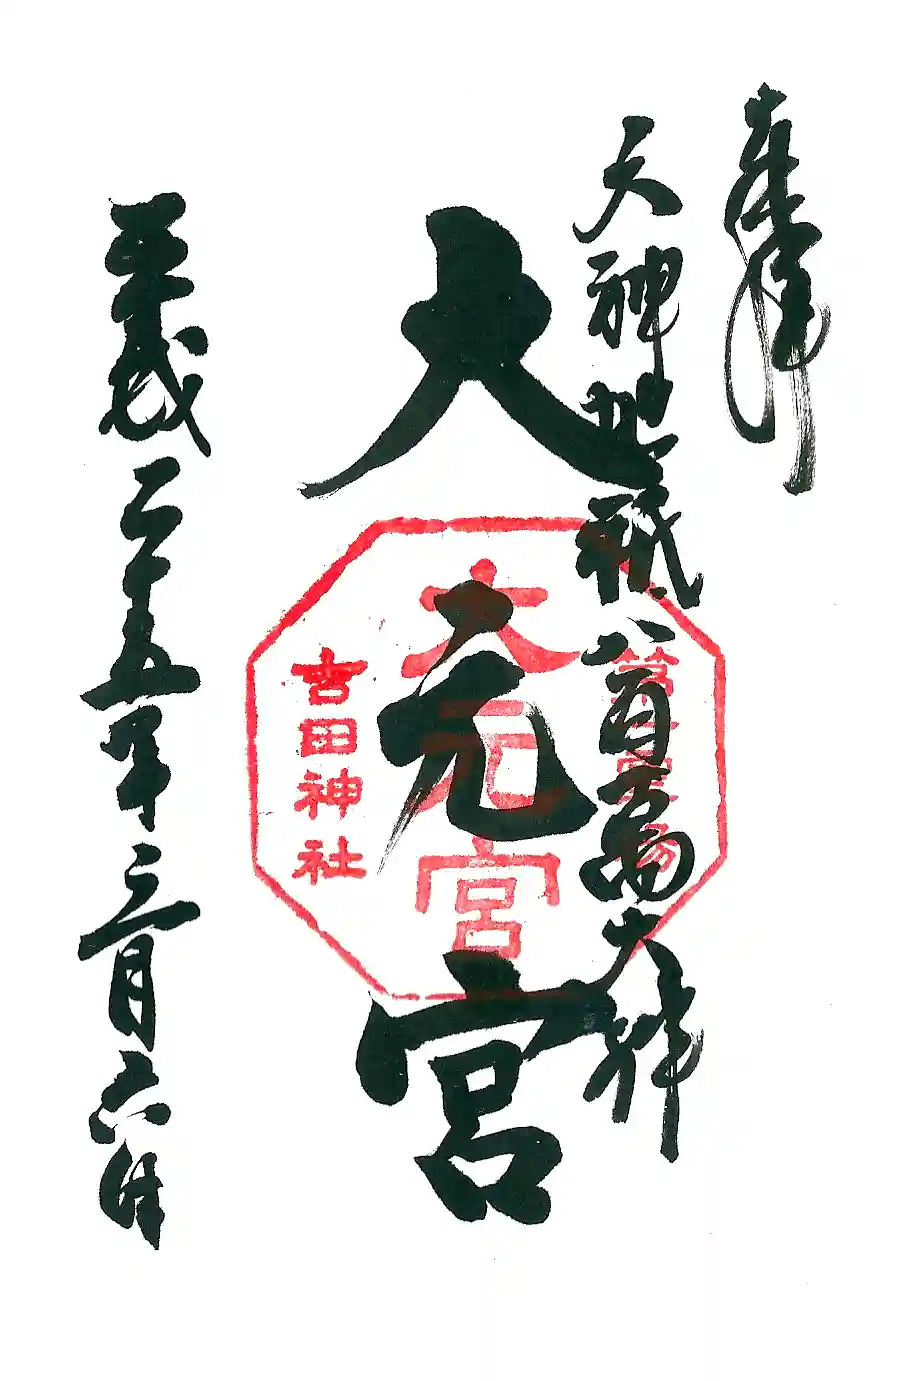 奉拝
天神地祇八百萬大神
大元宮
大元宮
吉田神社
平成二十五年三月六日